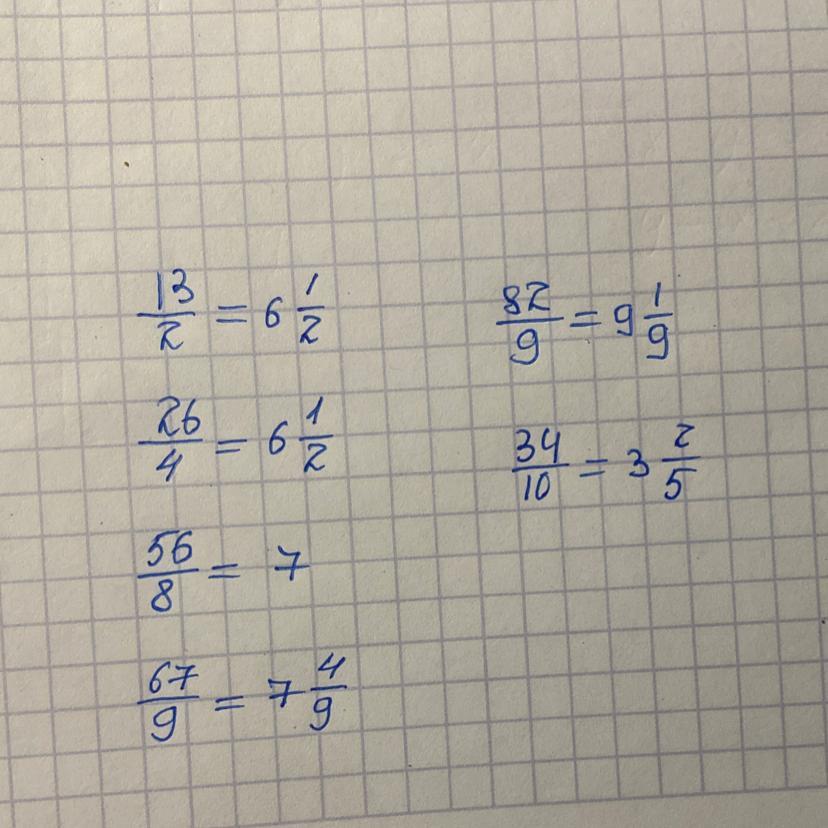 13/2 = 6 1/2
26/4 = 6 1/2
56/8 = 7
67/9 = 7 4/9
82/9 = 9 1/9
34/10 = 3 2/5